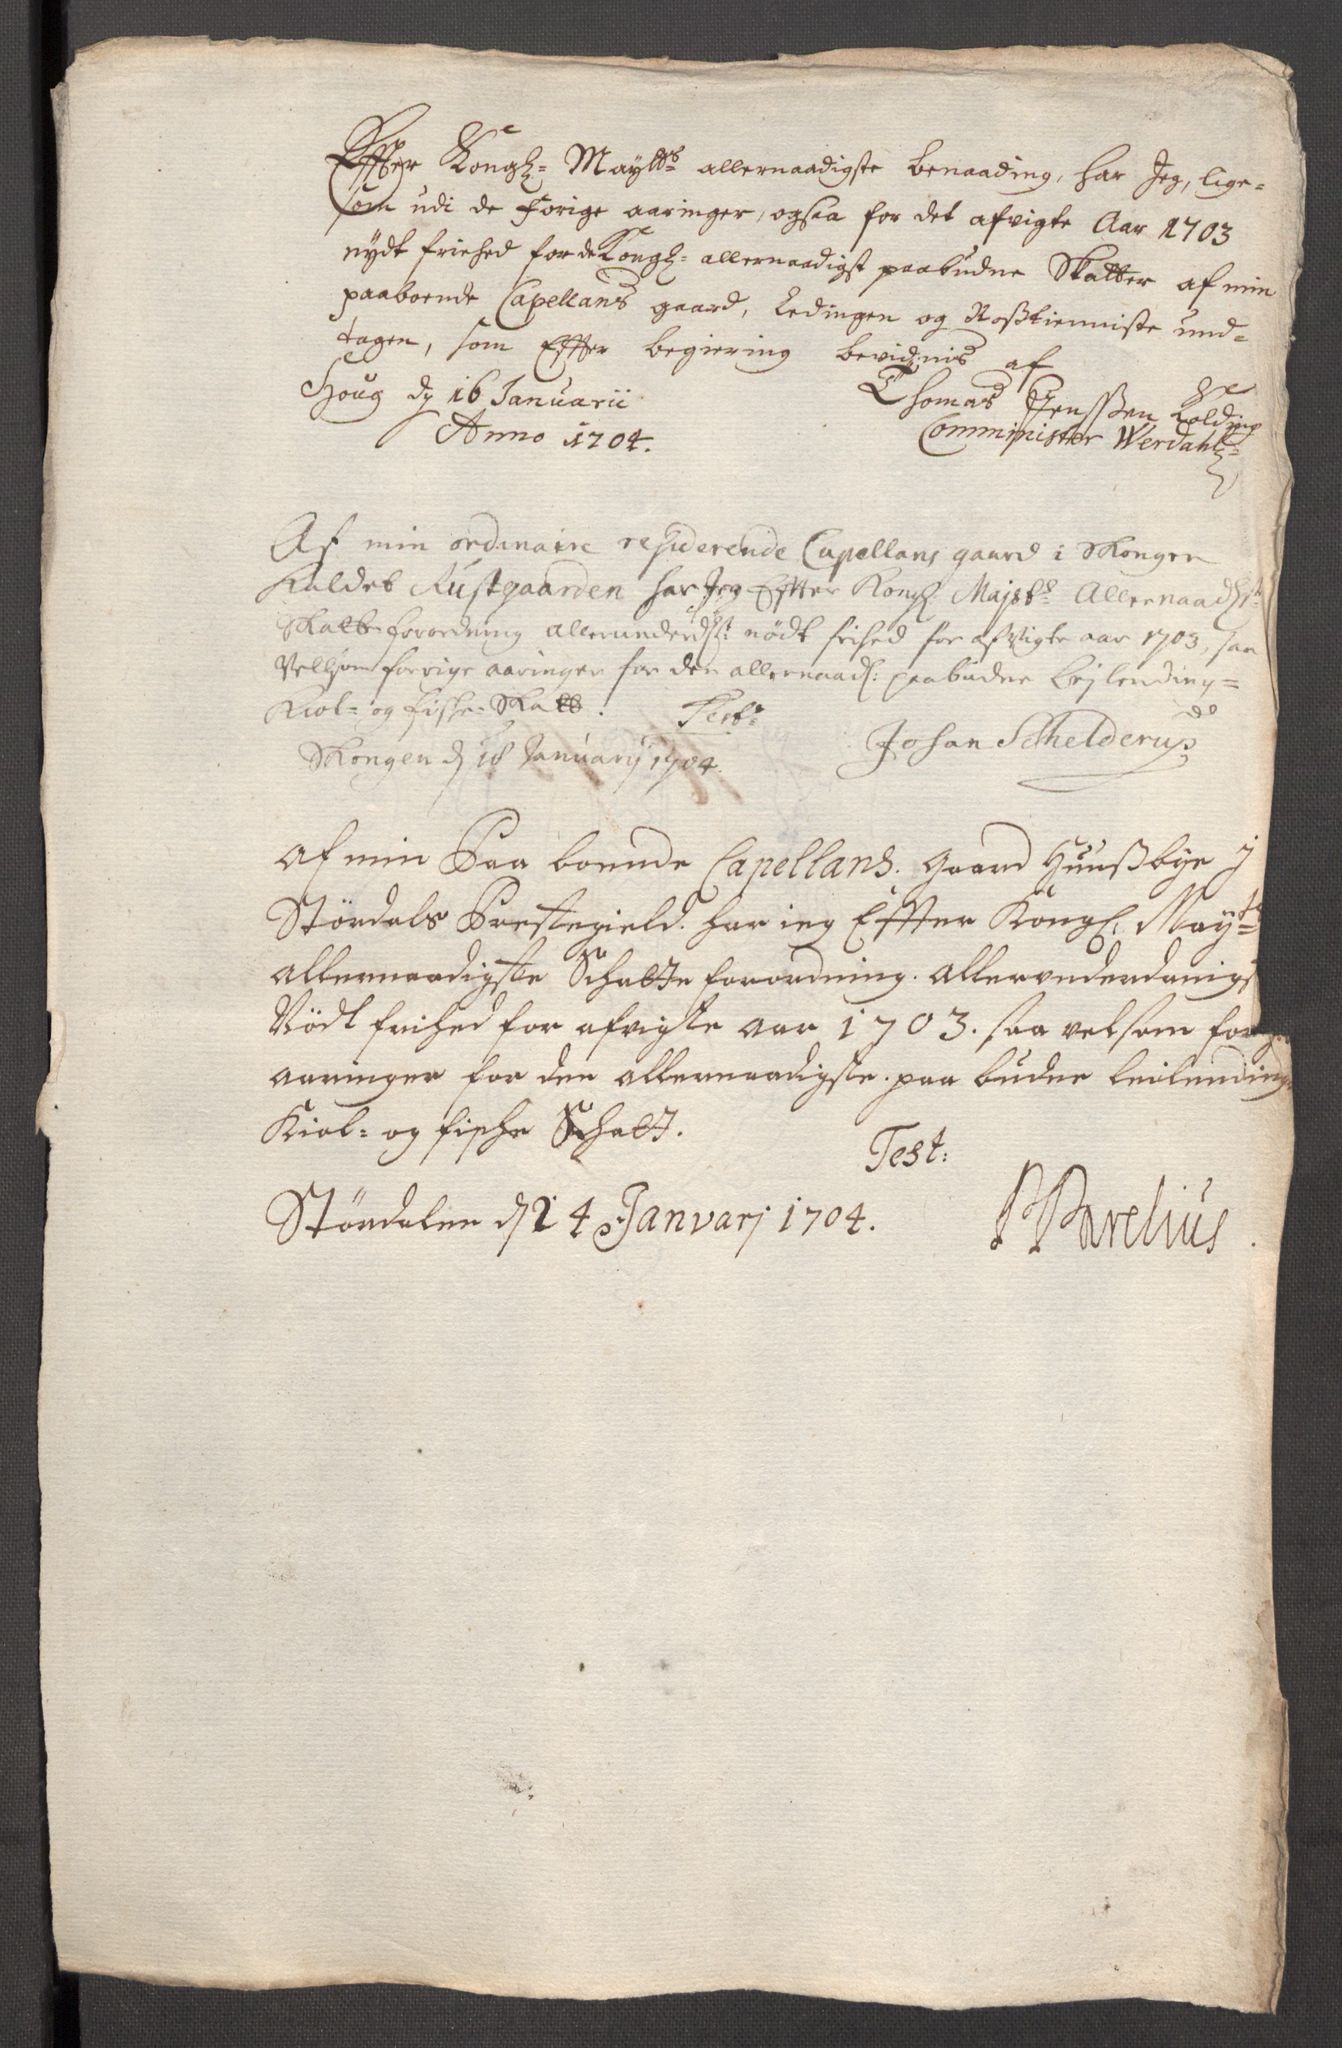 Effter Kongl= Maytts allernaadigste benaading, har Jeg, lige=
som udi de forige aaringer, ogsaa for det afvigte Aar 1703
nydt friehed for de Kongl= allernaadigst paabudne Skatter af min
paaboende Capellans gaard, Ledingen og Rosstienniste und=
tagen, som Effter begiering bevidnis af
Houg dy 16 Januarii Thomas Jenssen Kolding
Anno 1704. Comminister Werdahl=
Af min ordinaire residerende Capellans gaard i Skongen
Kaldet Rustgaarden har Jeg Effter Kongl. Majsts Allernaadst
Skatte forordning allerunderdst nödt frihed for afvigte aar 1703, saa
Vellsom forrige aaringer for den allernaadl: paabudne lejlending=
Kiol= og fische= Skatt. Test:
Skongen d 18 Januarij 1704. Johan Schelderup
af min Paa boende Capellans. gaard Huussbye j
Stördals Prestegield. har ieg Effter Kongl. Mayts
allernaadigste Schatte forordning. allervnderdanigst
Nödt frihed for afvigte aar 1703. saa vel som forige
aaringer for den allernaadigste. paa budne leilendings
Kiol= og fische Schatt.
Test:
Stördalen d 24 Janvarj 1704. Arelius.